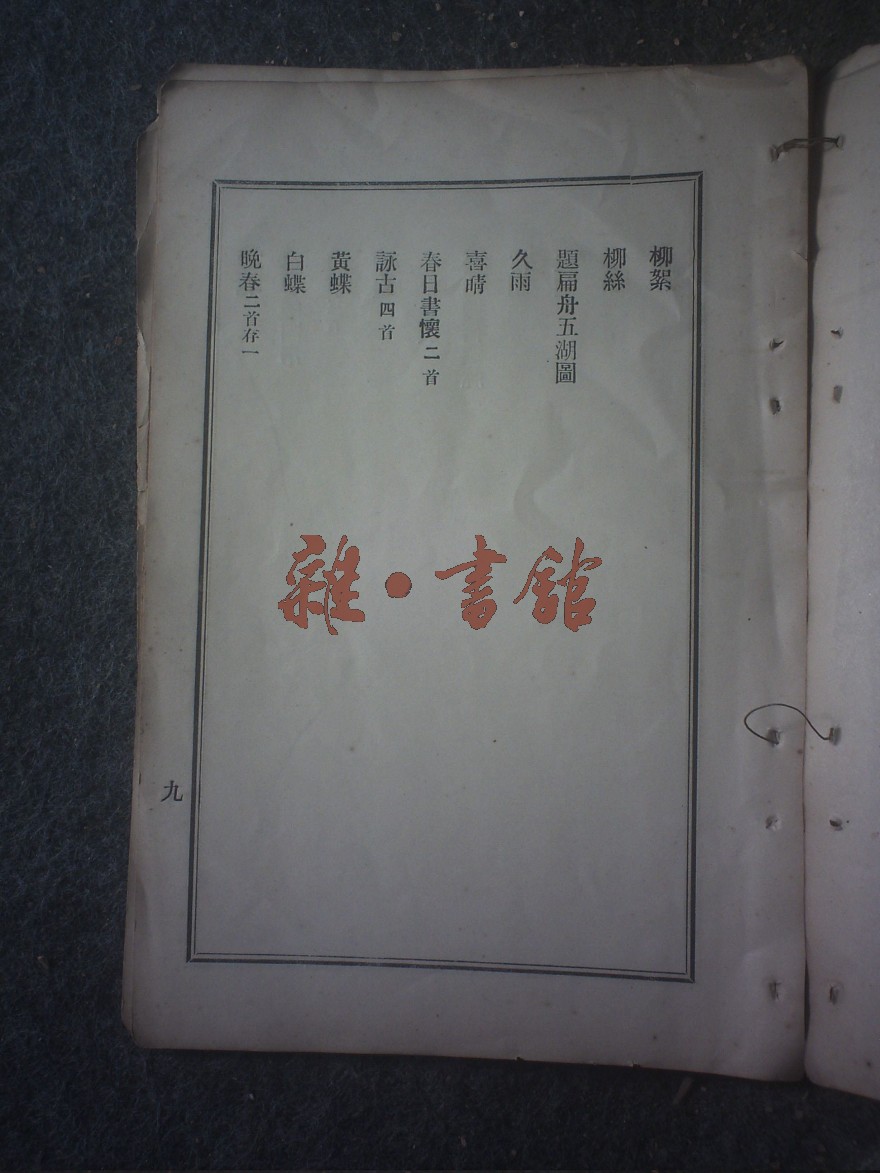 柳絮
柳絲
題扁舟五湖圖
久雨
喜晴
春日書懷二首
詠古四首
黃蝶
白蝶
晚春二首存一
九
雜·書館